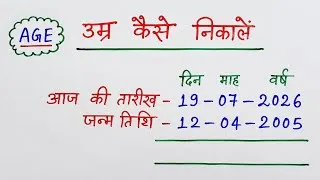 AGE उम्र कैसे निकालें
दिन माह वर्ष
आज की तारीख - 19-07-2026
जन्म तिथि - 12-04-2005